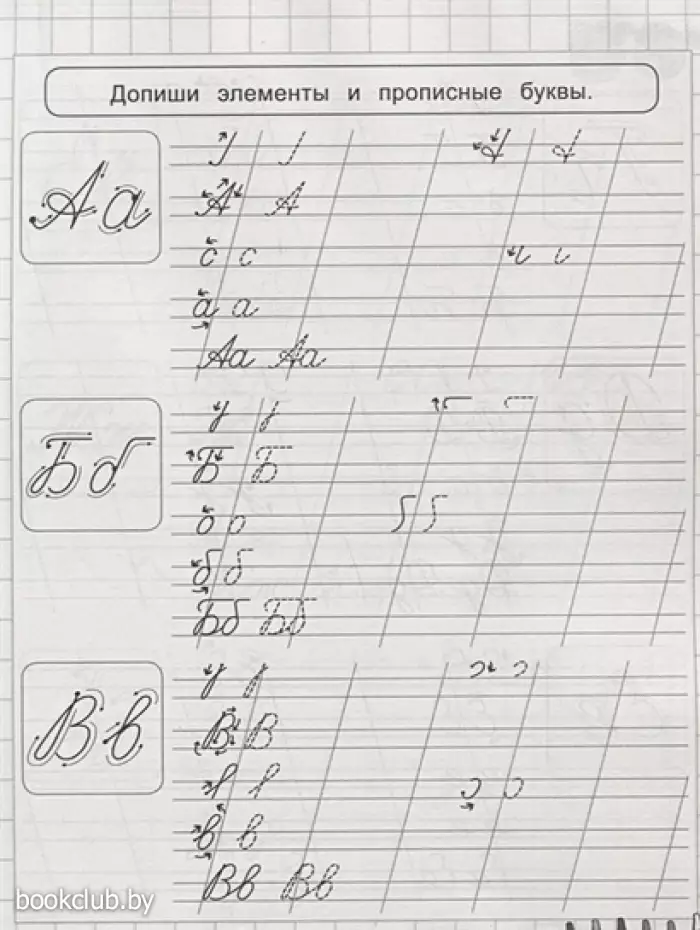 Допиши элементы и прописные буквы.
А а
А А
с с
а а
Аа Аа
Б б
Б Б
о о
б б
Бб Бб
В в
В В
в в
Вв Вв
bookclub.by